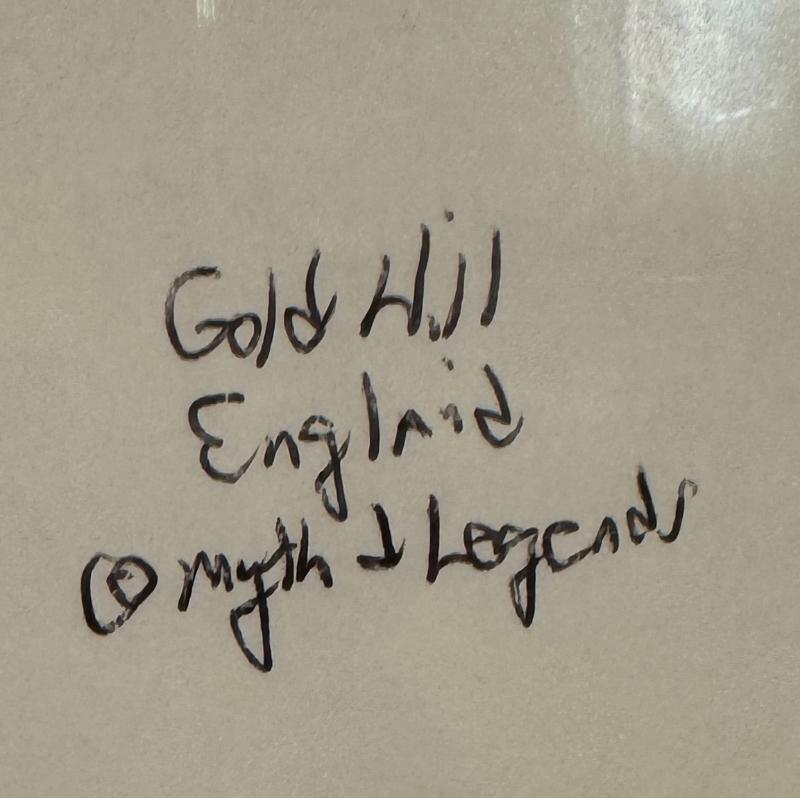 Gold Hill
England
@ Myth & Legends